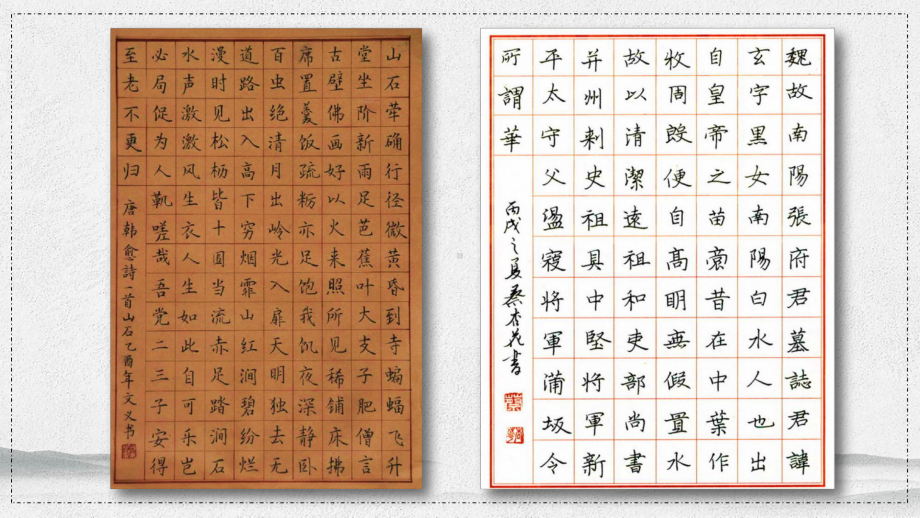 山石荦确行径微黄昏到寺蝙蝠飞升
堂坐阶新雨足芭蕉叶大支子肥僧言
古壁佛画好以火来照所见稀铺床拂
席置羹饭疏粝亦足饱我饥夜深静卧
百虫绝清月出岭光入扉天明独去无
道路出入高下穷烟霏山红涧碧纷烂
漫时见松枥皆十围当流赤足踏涧石
水声激激风生衣人生如此自可乐岂
必局促为人鞿嗟哉吾党二三子安得
至老不更归
唐韩愈詩一首山石乙酉年文义书
魏故南陽張府君墓誌君諱
玄字黑女南陽白水人也出
自皇帝之苗裔昔在中葉作
牧周殷便自髙明無假置水
故以清潔遠祖和吏部尚書
并州刺史祖具中堅將軍新
平太守父盪寇將軍蒲坂令
所謂華
丙戌之夏蔡杏花書